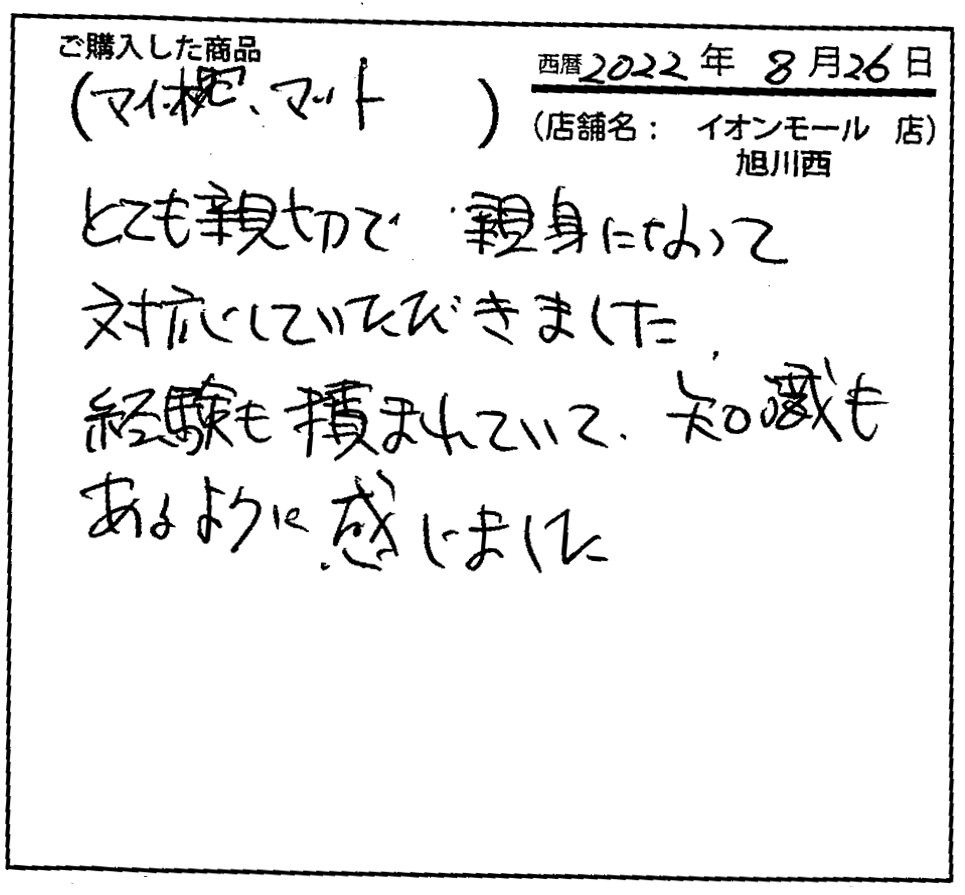 ご購入した商品
(マイ枕、マット)
西暦2022年 8月26日
(店舗名: イオンモール 店)
旭川西
とても親切で 親身になって
対応していただきました、
経験も積まれていて、知識も
あるように感じました